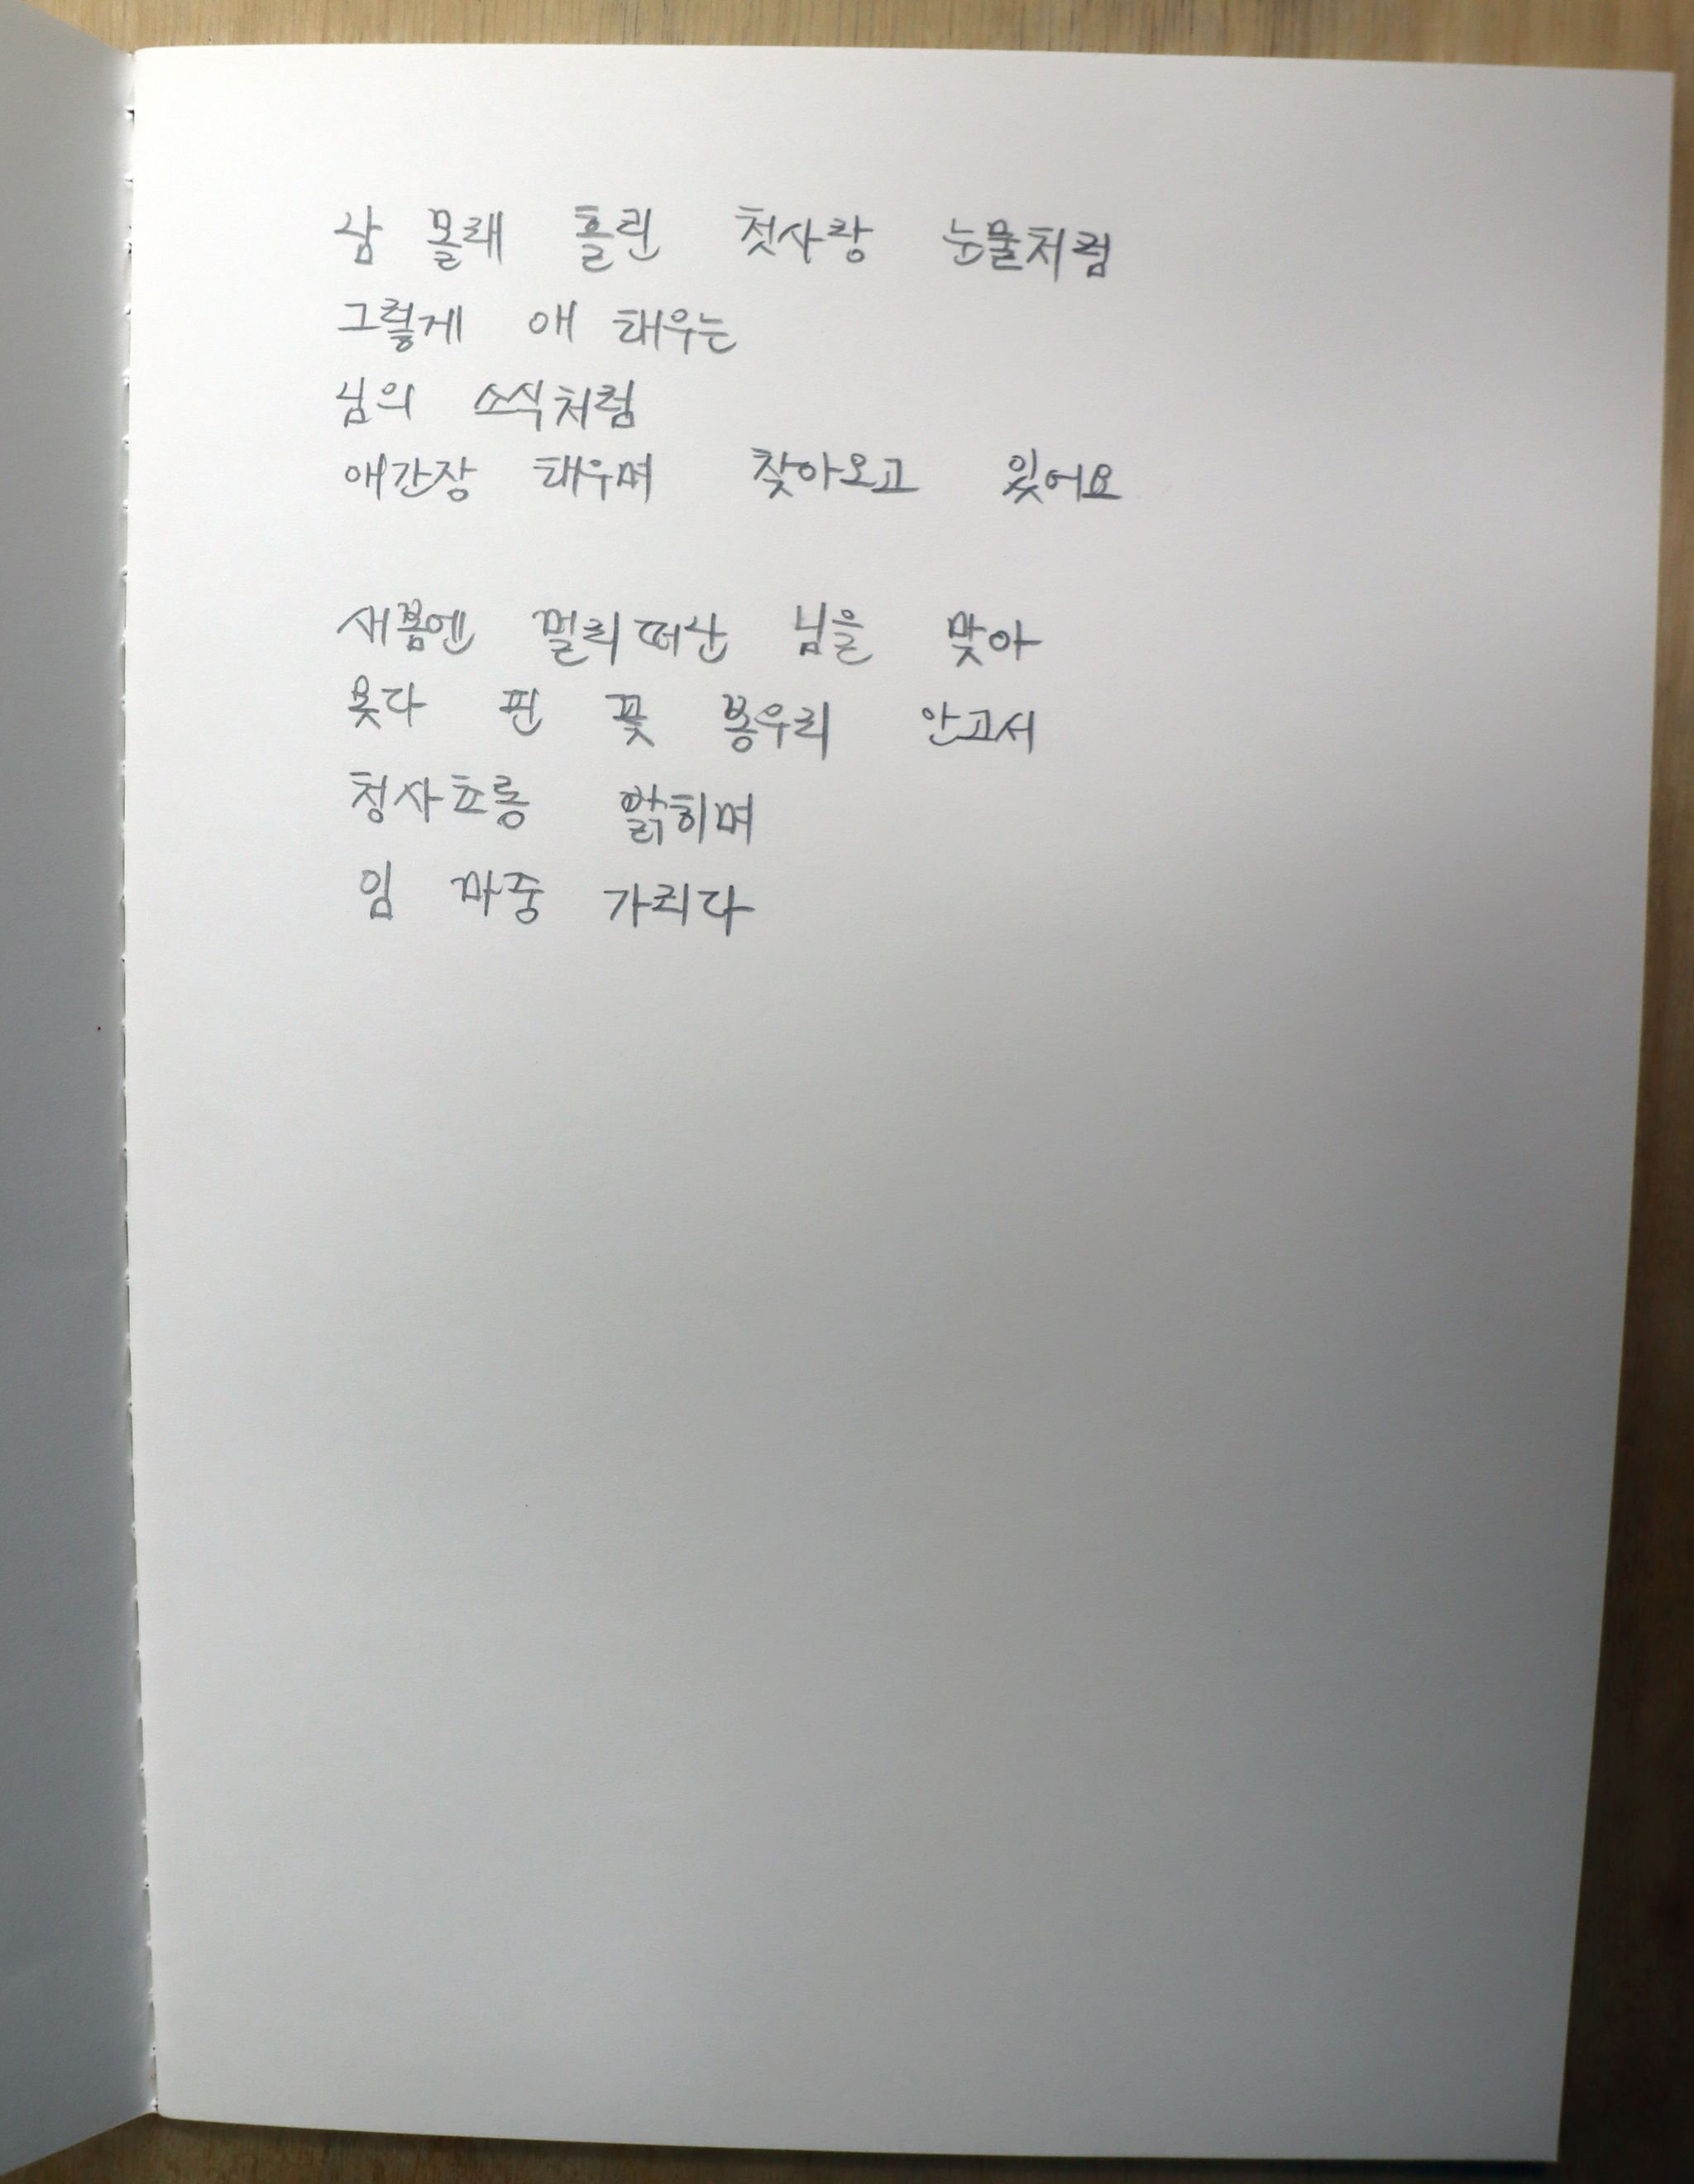 남 몰래 흘린 첫사랑 눈물처럼
그렇게 애 태우는
님의 소식처럼
애간장 태우며 찾아오고 있어요
새봄엔 멀리떠난 님을 맞아
못다 핀 꽃 봉우리 안고서
청사초롱 밝히며
임 마중 가리다